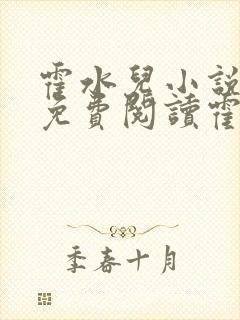 霍水兒小說
免費閱讀霍
季春十月